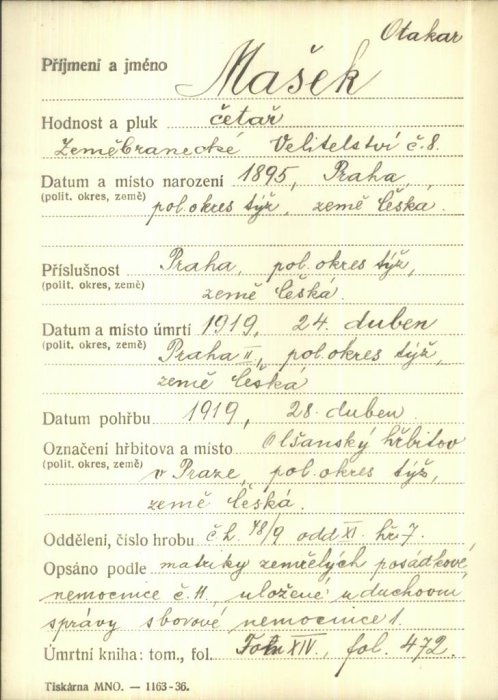 Otakar
Příjmení a jméno Mašek
Hodnost a pluk četař
Zeměbranecké Velitelství č.8.
Datum a místo narození 1895, Praha,
(polit. okres, země) pol. okres týž, země česká.
Příslušnost Praha, pol. okres týž,
(polit. okres, země) země česká.
Datum a místo úmrtí 1919, 24. duben
(polit. okres, země) Praha II, pol. okres týž,
země česká
Datum pohřbu 1919, 28. duben
Označení hřbitova a místo Olšanský hřbitov
(polit. okres, země) v Praze, pol. okres týž,
země česká.
Oddělení, číslo hrobu č.h. 48/9 odd XI. hř. 7.
Opsáno podle matriky zemřelých posádkové
nemocnice č. 11, uložené u duchovní
správy sborové nemocnice 1.
Úmrtní kniha: tom., fol. Tom XIV, fol. 472.
Tiskárna MNO. — 1163-36.